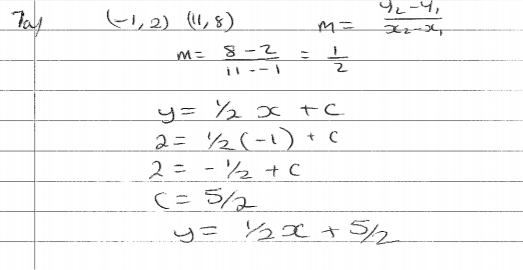 7a) (-1, 2) (11, 8) m = y₂-y₁ / x₂-x₁
m = 8-2 / 11--1 = 1/2
y = 1/2 x + c
2 = 1/2(-1) + c
2 = -1/2 + c
c = 5/2
y = 1/2x + 5/2